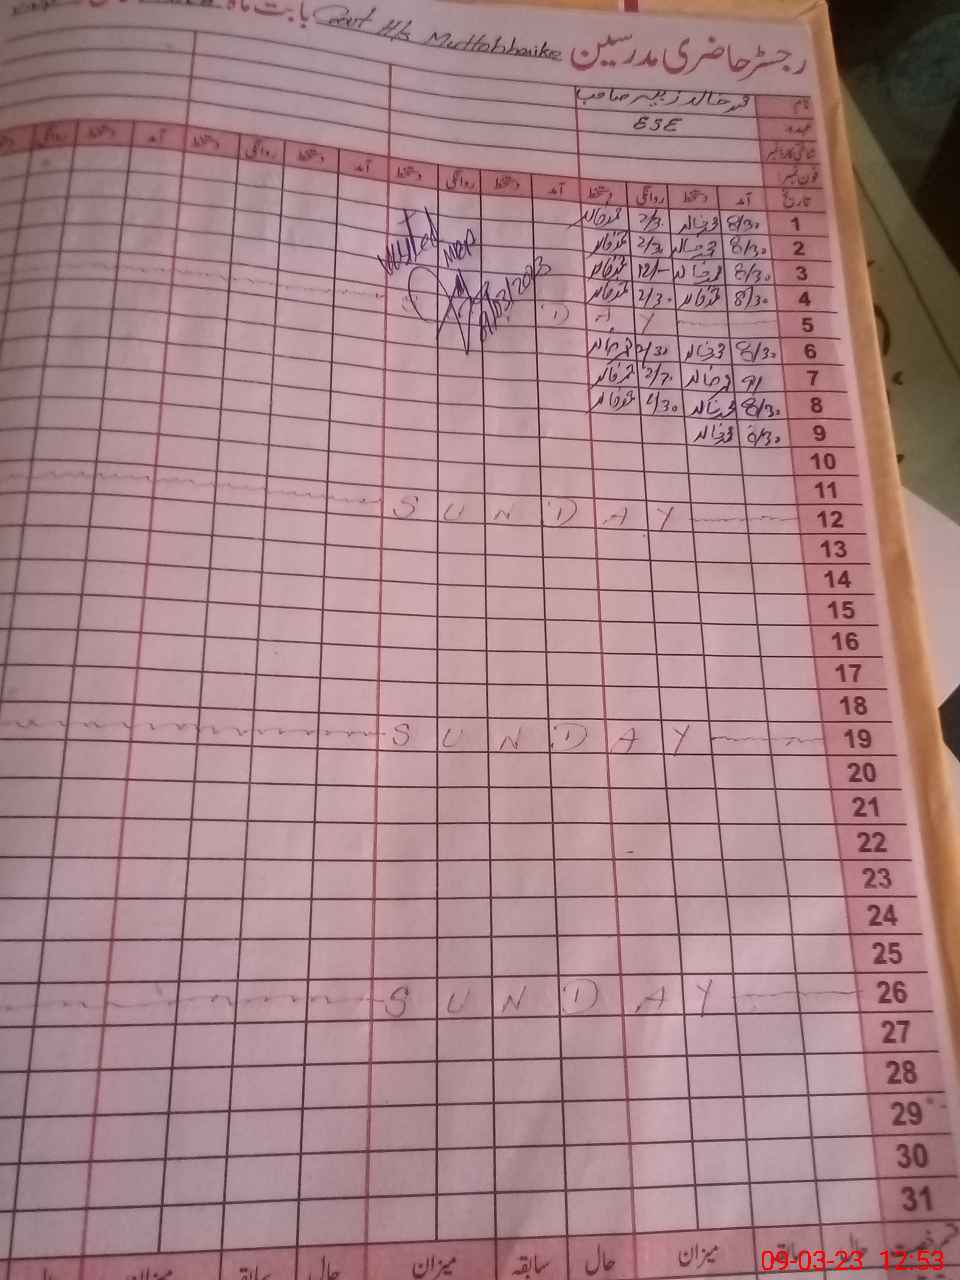 رجسٹر حاضری مدرسین Govt H/s Muttahbaike بابت ماہ
نام محمد خالد زبیر صاحب
عہدہ ESE
شناختی کارڈ نمبر
فون نمبر
تاریخ آمد دستخط روانگی دستخط آمد دستخط روانگی دستخط آمد دستخط روانگی دستخط آمد دستخط روانگی
1 8/30 محمد خالد 2/30 محمد خالد
2 8/30 محمد خالد 2/30 محمد خالد
3 8/30 محمد خالد 12/- محمد خالد
4 8/30 محمد خالد 2/30 محمد خالد
5 D A Y
6 8/30 محمد خالد 2/30 محمد خالد
7 محمد خالد محمد خالد
8 8/30 محمد خالد محمد خالد
9 8/30 محمد خالد
Visited
MEA
10
11
12 S U N D A Y
13
14
15
16
17
18
19 S U N D A Y
20
21
22
23
24
25
26 S U N D A Y
27
28
29
30
31
میزان حال سابقہ میزان حال سابقہ میزان
09-03-23 12:53